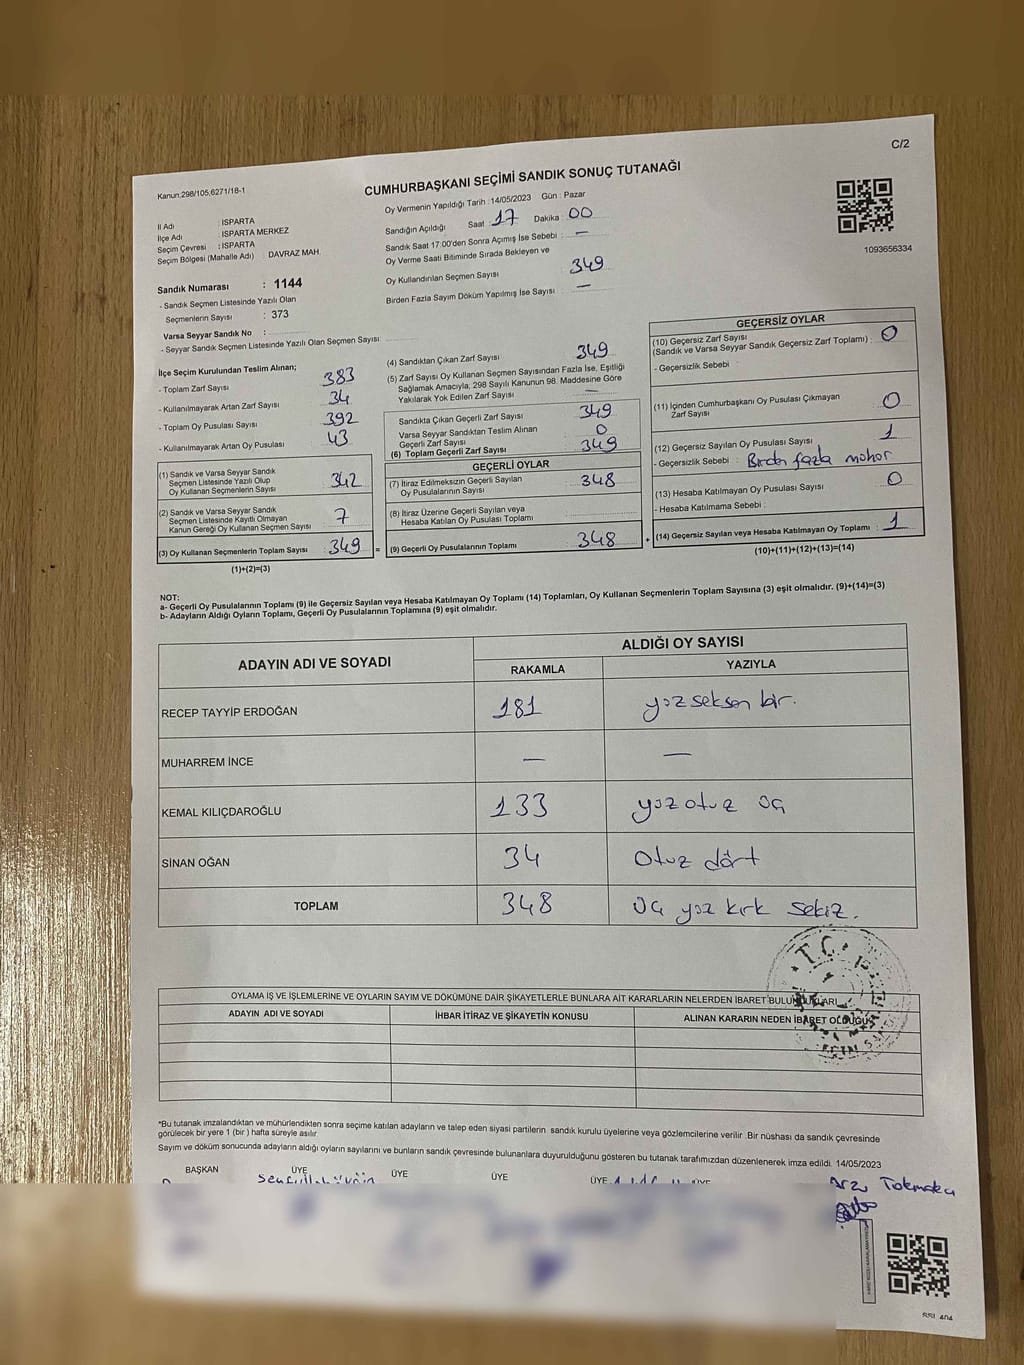 C/2
Kanun:298/105,6271/18-1
CUMHURBAŞKANI SEÇİMİ SANDIK SONUÇ TUTANAĞI
Oy Vermenin Yapıldığı Tarih :14/05/2023 Gün : Pazar
İl Adı : ISPARTA
İlçe Adı : ISPARTA MERKEZ
Seçim Çevresi : ISPARTA
Seçim Bölgesi (Mahalle Adı) DAVRAZ MAH.
Sandığın Açıldığı Saat 17 Dakika 00
Sandık Saat 17:00'den Sonra Açımış İse Sebebi : —
Oy Verme Saati Bitiminde Sırada Bekleyen ve
Oy Kullandırılan Seçmen Sayısı 349
Birden Fazla Sayım Döküm Yapılmış İse Sayısı —
1093656334
Sandık Numarası : 1144
- Sandık Seçmen Listesinde Yazılı Olan
Seçmenlerin Sayısı : 373
Varsa Seyyar Sandık No :
- Seyyar Sandık Seçmen Listesinde Yazılı Olan Seçmen Sayısı:
İlçe Seçim Kurulundan Teslim Alınan;
- Toplam Zarf Sayısı 383
- Kullanılmayarak Artan Zarf Sayısı 34
- Toplam Oy Pusulası Sayısı 392
- Kullanılmayarak Artan Oy Pusulası 43
(1) Sandık ve Varsa Seyyar Sandık
Seçmen Listesinde Yazılı Olup
Oy Kullanan Seçmenlerin Sayısı : 342
(2) Sandık ve Varsa Seyyar Sandık
Seçmen Listesinde Kayıtlı Olmayan
Kanun Gereği Oy Kullanan Seçmen Sayısı : 7
(3) Oy Kullanan Seçmenlerin Toplam Sayısı : 349 =
(1)+(2)=(3)
(4) Sandıktan Çıkan Zarf Sayısı 349
(5) Zarf Sayısı Oy Kullanan Seçmen Sayısından Fazla İse, Eşitliği
Sağlamak Amacıyla, 298 Sayılı Kanunun 98. Maddesine Göre
Yakılarak Yok Edilen Zarf Sayısı —
Sandıkta Çıkan Geçerli Zarf Sayısı 349
Varsa Seyyar Sandıktan Teslim Alınan
Geçerli Zarf Sayısı 0
(6) Toplam Geçerli Zarf Sayısı 349
GEÇERLİ OYLAR
(7) İtiraz Edilmeksizin Geçerli Sayılan
Oy Pusulalarının Sayısı : 348
(8) İtiraz Üzerine Geçerli Sayılan veya
Hesaba Katılan Oy Pusulası Toplamı
(9) Geçerli Oy Pusulalarının Toplamı 348 +
GEÇERSİZ OYLAR
(10) Geçersiz Zarf Sayısı
(Sandık ve Varsa Seyyar Sandık Geçersiz Zarf Toplamı) : 0
- Geçersizlik Sebebi :
(11) İçinden Cumhurbaşkanı Oy Pusulası Çıkmayan
Zarf Sayısı 0
(12) Geçersiz Sayılan Oy Pusulası Sayısı 1
- Geçersizlik Sebebi : Birden fazla mühür
(13) Hesaba Katılmayan Oy Pusulası Sayısı 0
- Hesaba Katılmama Sebebi :
(14) Geçersiz Sayılan veya Hesaba Katılmayan Oy Toplamı : 1
(10)+(11)+(12)+(13)=(14)
NOT:
a- Geçerli Oy Pusulalarının Toplamı (9) ile Geçersiz Sayılan veya Hesaba Katılmayan Oy Toplamı (14) Toplamları, Oy Kullanan Seçmenlerin Toplam Sayısına (3) eşit olmalıdır. (9)+(14)=(3)
b- Adayların Aldığı Oyların Toplamı, Geçerli Oy Pusulalarının Toplamına (9) eşit olmalıdır.
ADAYIN ADI VE SOYADI
ALDIĞI OY SAYISI
RAKAMLA YAZIYLA
RECEP TAYYİP ERDOĞAN 181 yüz seksen bir.
MUHARREM İNCE — —
KEMAL KILIÇDAROĞLU 133 yüz otuz üç
SİNAN OĞAN 34 Otuz dört
TOPLAM 348 Üç yüz kırk sekiz.
T.C.
OYLAMA İŞ VE İŞLEMLERİNE VE OYLARIN SAYIM VE DÖKÜMÜNE DAİR ŞİKAYETLERLE BUNLARA AİT KARARLARIN NELERDEN İBARET BULUNDUKLARI
ADAYIN ADI VE SOYADI İHBAR İTİRAZ VE ŞİKAYETİN KONUSU ALINAN KARARIN NEDEN İBARET OLDUĞU
*Bu tutanak imzalandıktan ve mühürlendikten sonra seçime katılan adayların ve talep eden siyasi partilerin sandık kurulu üyelerine veya gözlemcilerine verilir .Bir nüshası da sandık çevresinde
görülecek bir yere 1 (bir ) hafta süreyle asılır.
Sayım ve döküm sonucunda adayların aldığı oyların sayılarını ve bunların sandık çevresinde bulunanlara duyurulduğunu gösteren bu tutanak tarafımızdan düzenlenerek imza edildi. 14/05/2023
BAŞKAN ÜYE ÜYE ÜYE ÜYE ÜYE
Arzu Tokmakcı